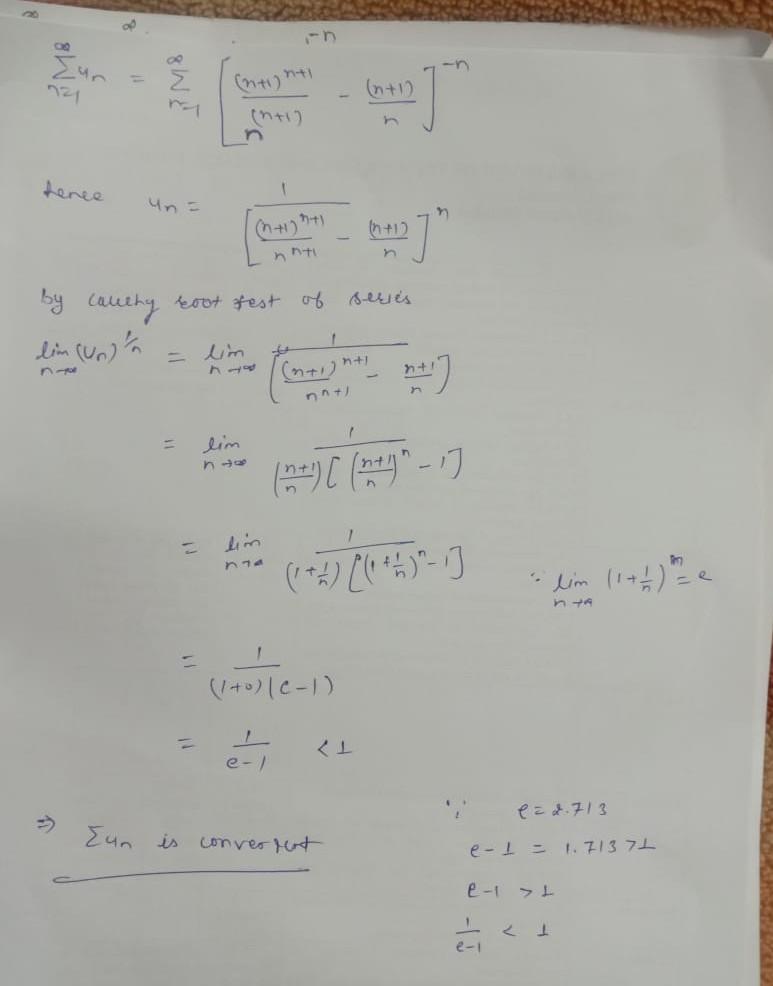 ∞ ∞ -n
∞∑n=1 un = ∞∑n=1 [ (n+1)^n+1 / n^(n+1) - (n+1)/n ]^-n
hence un = 1 / [ (n+1)^n+1 / n^n+1 - (n+1)/n ]^n
by cauchy root test of series
lim n→∞ (Un)^1/n = lim n→∞ 1 / [ (n+1)^n+1 / n^n+1 - n+1/n ]
= lim n→∞ 1 / (n+1/n) [ (n+1/n)^n - 1 ]
= lim n→∞ 1 / (1+1/n) [ (1+1/n)^n - 1 ] ∵ lim n→∞ (1+1/n)^n = e
= 1 / (1+0)(e-1)
= 1 / e-1 < 1
⇒ Σun is convergent
∵ e = 2.713
e-1 = 1.713 > 1
e-1 > 1
1/e-1 < 1